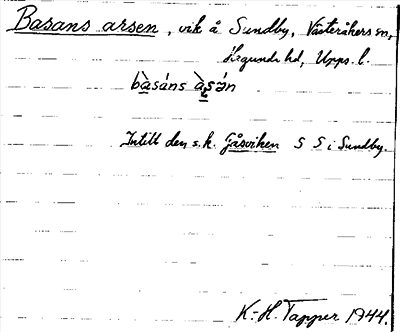 Basans arsen, vik å Sundby, Västeråkers sn,
Hagunda hd, Upps. l.
bàsáns àṣán
Intill den s.k. Gåsviken S S i Sundby.
K.-H. Tapper 1944.